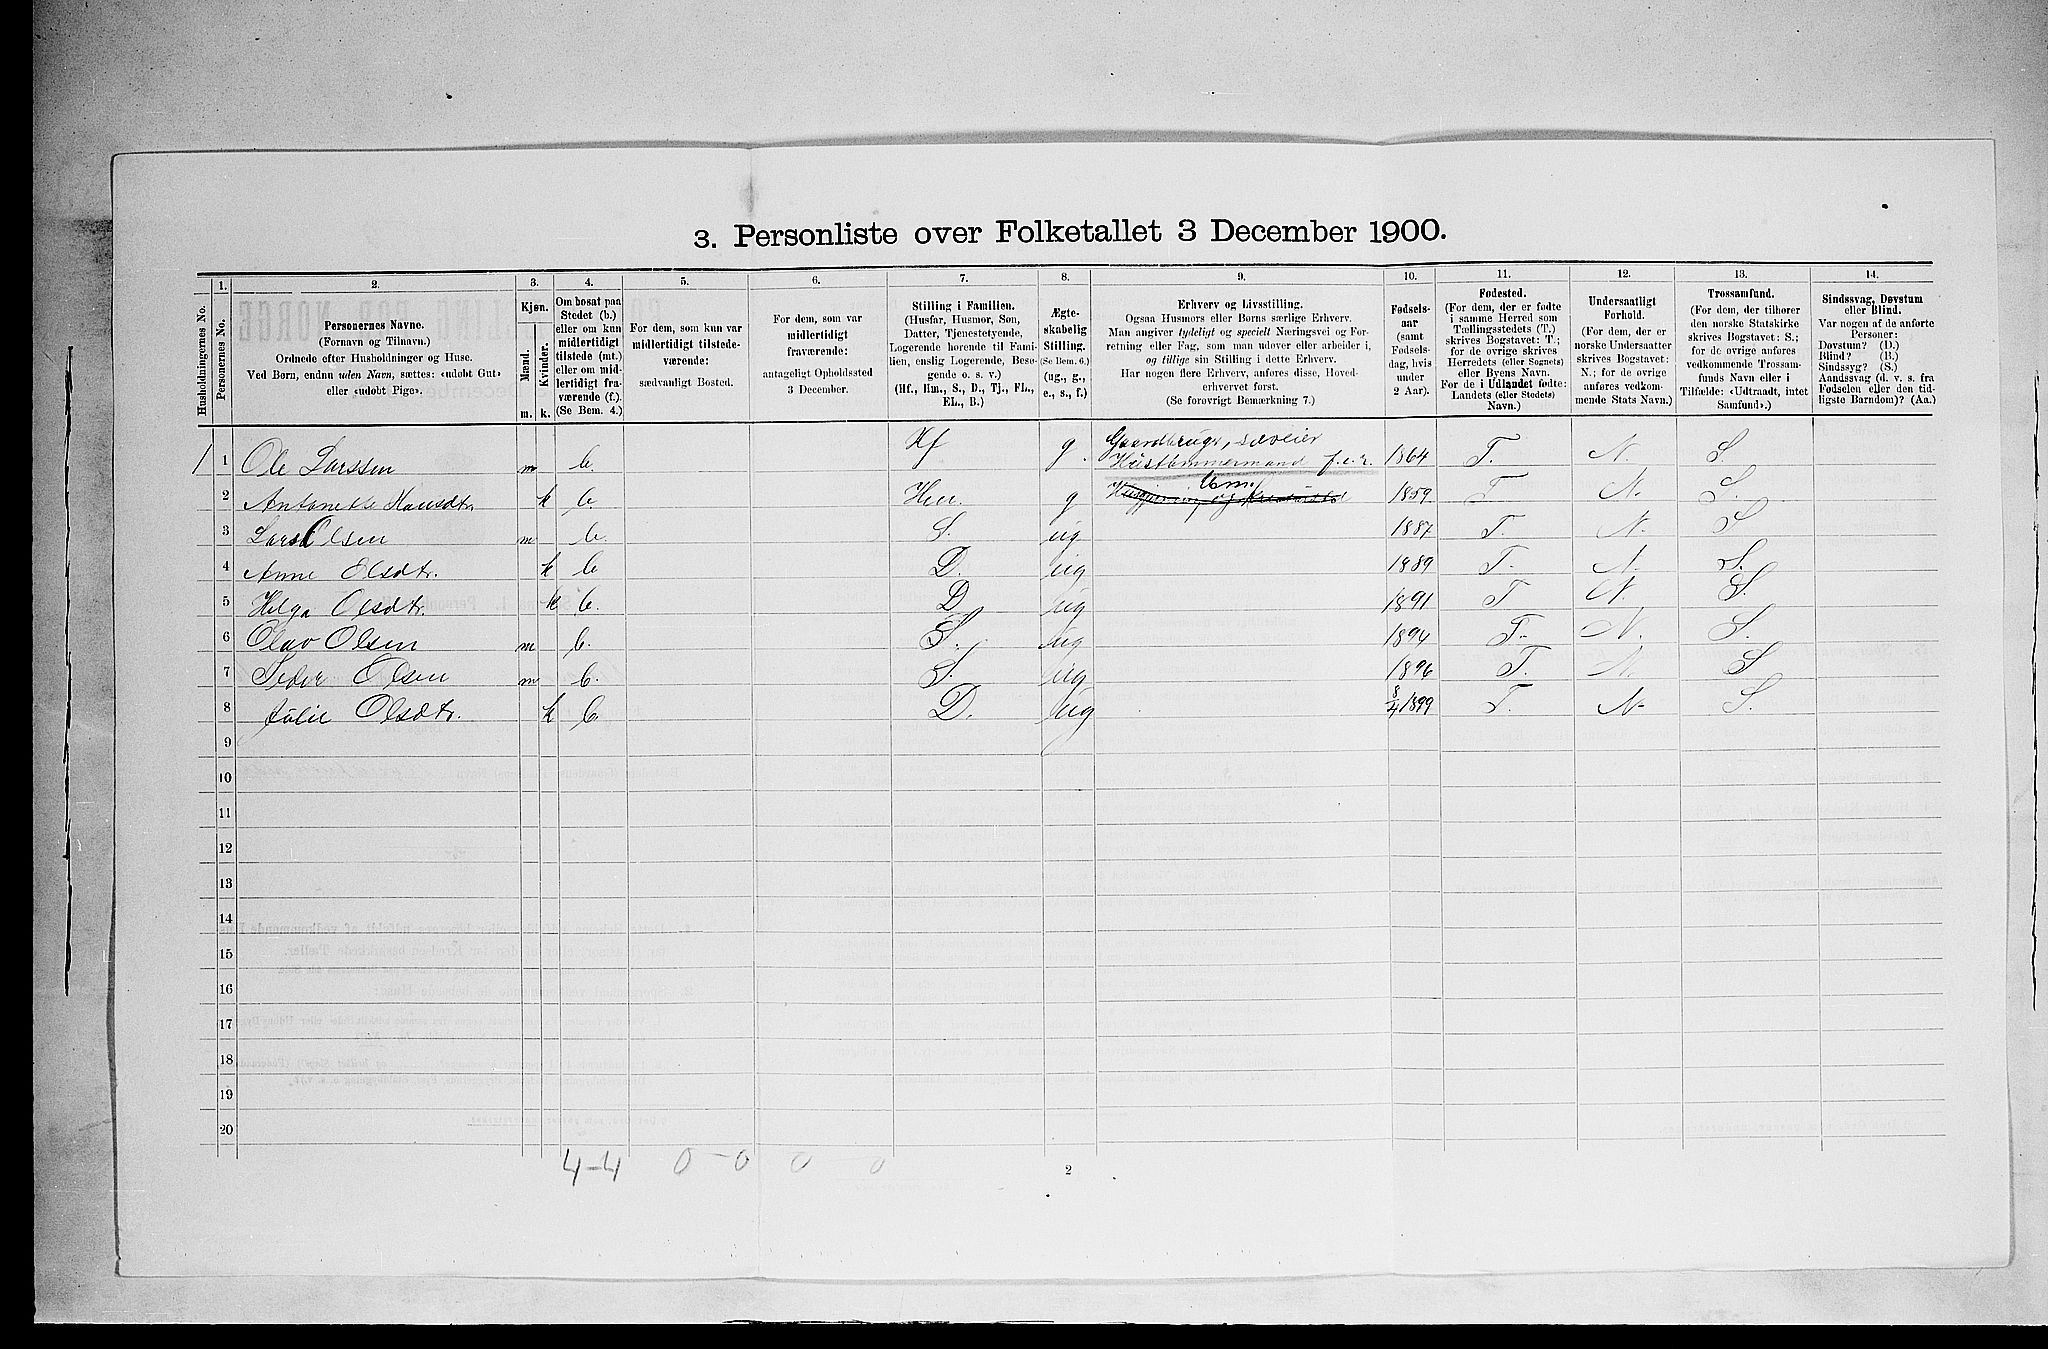 3. Personliste over Folketallet 3 December 1900.
1. 2. 3. 4. 5. 6. 7. 8. 9. 10. 11. 12. 13. 14.
Husholdningernes No.
Personernes No.
Personernes Navne.
(Fornavn og Tilnavn.)
Ordnede efter Husholdninger og Huse.
Ved Børn, endnu uden Navn, sættes: «udøbt Gut»
eller «udøbt Pige».
Kjøn.
Mænd.
Kvinder.
m. k.
Om bosat paa
Stedet (b.)
eller om kun
midlertidigt
tilstede (mt.)
eller om mid-
lertidigt fra-
værende (f.).
(Se Bem. 4.)
For dem, som kun var
midlertidigt tilstede-
værende:
sædvanligt Bosted.
For dem, som var
midlertidigt
fraværende:
antageligt Opholdssted
3 December.
Stilling i Familien.
(Husfar, Husmor, Søn,
Datter, Tjenestetyende,
Logerende hørende til Fami-
lien, enslig Logerende, Besø-
gende o. s. v.)
(Hf., Hm., S., D., Tj., FL.,
EL., B.)
Ægte-
skabelig
Stilling.
(Se Bem. 6.)
(ug., g.,
e., s., f.)
Erhverv og Livsstilling.
Ogsaa Husmors eller Børns særlige Erhverv.
Man angiver tydeligt og specielt Næringsvei og For-
retning eller Fag, som man udøver eller arbeider i,
og tillige sin Stilling i dette Erhverv.
Har nogen flere Erhverv, anføres disse, Hoved-
erhvervet først.
(Se forøvrigt Bemærkning 7.)
Fødsels-
aar
(samt
Fødsels-
dag, hvis
under
2 Aar).
Fødested.
(For dem, der er fødte
i samme Herred som
Tællingsstedets (T.)
skrives Bogstavet: T.;
for de øvrige skrives
Herredets (eller Sognets)
eller Byens Navn.
For de i Udlandet fødte:
Landets (eller Stedets)
Navn.)
Undersaatligt
Forhold.
(For dem, der er
norske Undersaatter
skrives Bogstavet:
N.; for de øvrige
anføres vedkom-
mende Stats Navn.)
Trossamfund.
(For dem, der tilhører
den norske Statskirke
skrives Bogstavet: S.;
for de øvrige anføres
vedkommende Trossam-
funds Navn eller i
Tilfælde: «Udtraadt, intet
Samfund».)
Sindssvag, Døvstum
eller Blind.
Var nogen af de anførte
Personer:
Døvstum? (D.)
Blind? (B.)
Sindssyg? (S.)
Aandssvag (d. v. s. fra
Fødselen eller den tid-
ligste Barndom)? (Aa.)
1 1 Ole Larssen m b. Hf g. Gaardbruger, selveier
Hustømmermand f.e.r. 1864 T. N. S
2 Antonette Hansdtr k b. Hm. g 1859 T N. S.
3 Lars Olsen m b. S. ug 1887 T. N. S
4 Anne Olsdtr. k b D. ug 1889 T. N. S.
5 Helga Olsdtr. k b. D ug 1891 T N. S.
6 Olav Olsen m b. S. ug 1894 T. N. S.
7 Peder Olsen m b. S. ug 1896 T. N. S
8 Julie Olsdtr. k b. D. ug 8/4 1899 T. N. S.
9
10
11
12
13
14
15
16
17
18
19
20
4-4 0-0 0-0
2